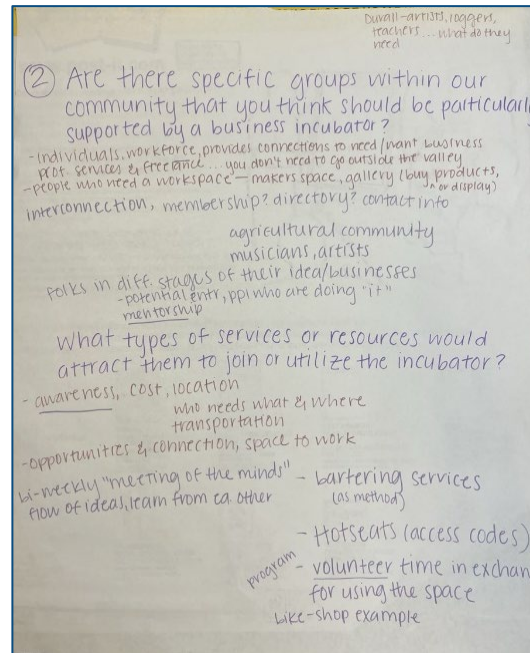 Duvall-artists, loggers,
teachers... what do they
need
② Are there specific groups within our
community that you think should be particularl
supported by a business incubator?
-individuals, workforce, provides connections to need/want business
prof. services & freelance... you don't need to go outside the valley
-people who need a workspace — makers space, gallery (buy products,
^ or display)
interconnection, membership? directory? contact info
agricultural community
musicians, artists
folks in diff. stages of their idea/businesses
-potential entr, ppl who are doing "it"
mentorship
What types of services or resources would
attract them to join or utilize the incubator?
- awareness, cost, location
who needs what & where
transportation
-opportunities & connection, space to work
bi-weekly "meeting of the minds"
flow of ideas, learn from ea. other
- bartering services
(as method)
- Hotseats (access codes)
program - volunteer time in exchan
for using the space
bike-shop example